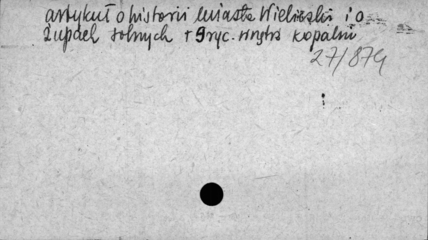 artykuł o historii miasta Wieliczki i o
żupach solnych + 9 ryc. wnętrz kopalni
27/879